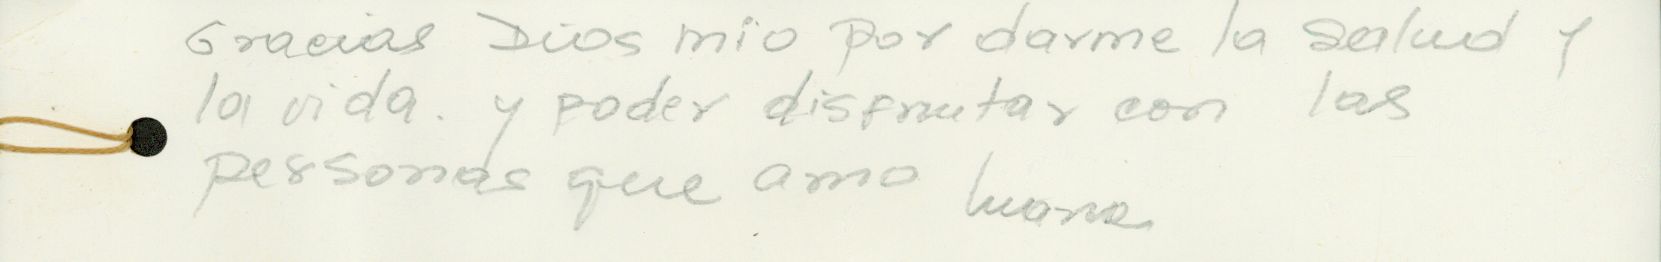 Gracias Dios mio por darme la salud y
la vida. y poder disfrutar con las
personas que amo